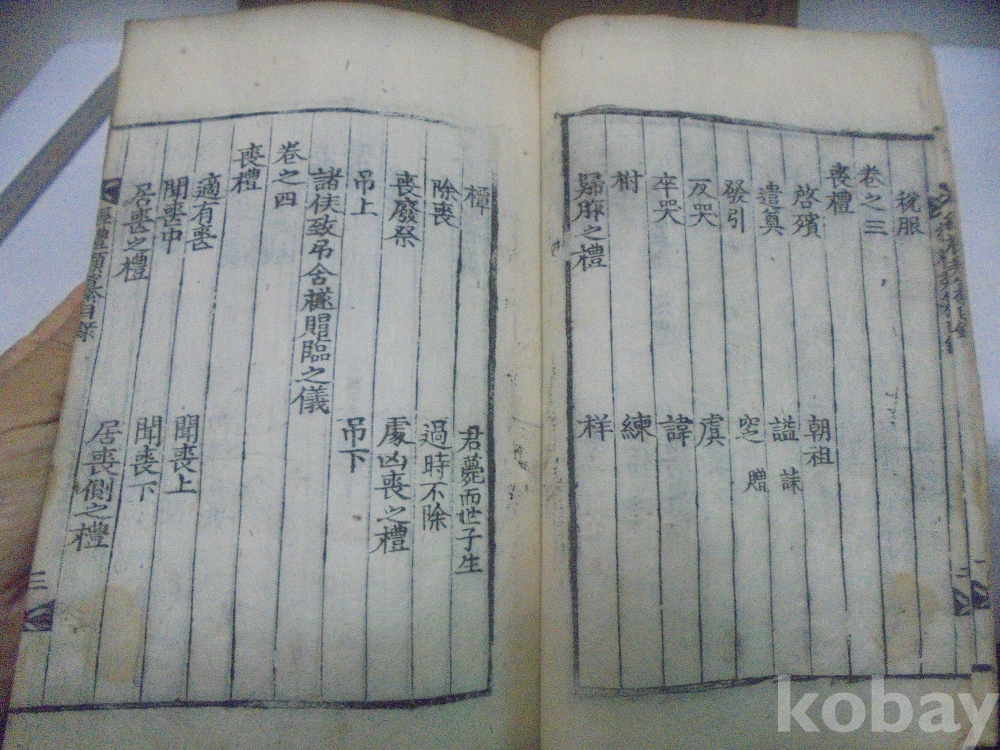 稅服
卷之三
喪禮
啓殯 朝祖
遣奠 謚 誄
發引 窆 贈
反哭 虞
卒哭 諱
祔 練
歸胙之禮 祥
禫 君薨而世子生
除喪 過時不除
喪廢祭 處凶喪之禮
吊上 吊下
諸侯致吊含襚賵臨之儀
卷之四
喪禮
適有喪
聞喪中 聞喪上
居喪之禮 聞喪下
居喪側之禮
三
二
kobay